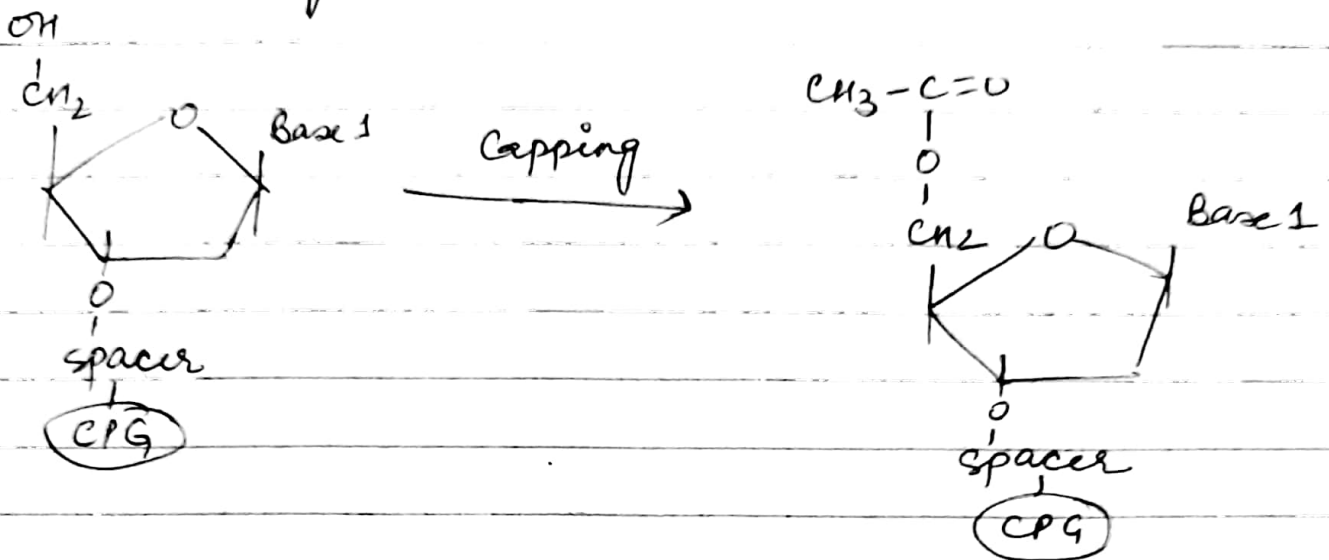 OH
CH2
O
Base 1
O
spacer
CPG
Capping
CH3-C=O
O
CH2
O
Base 1
O
spacer
CPG